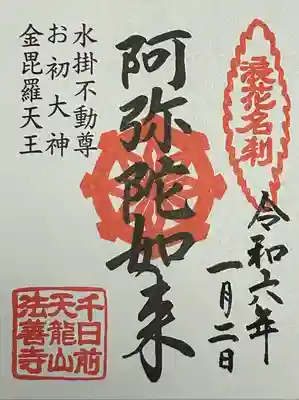 浪花名刹
令和六年
一月二日
阿弥陀如来
水掛不動尊
お初大神
金毘羅天王
千日前
天龍山
法善寺